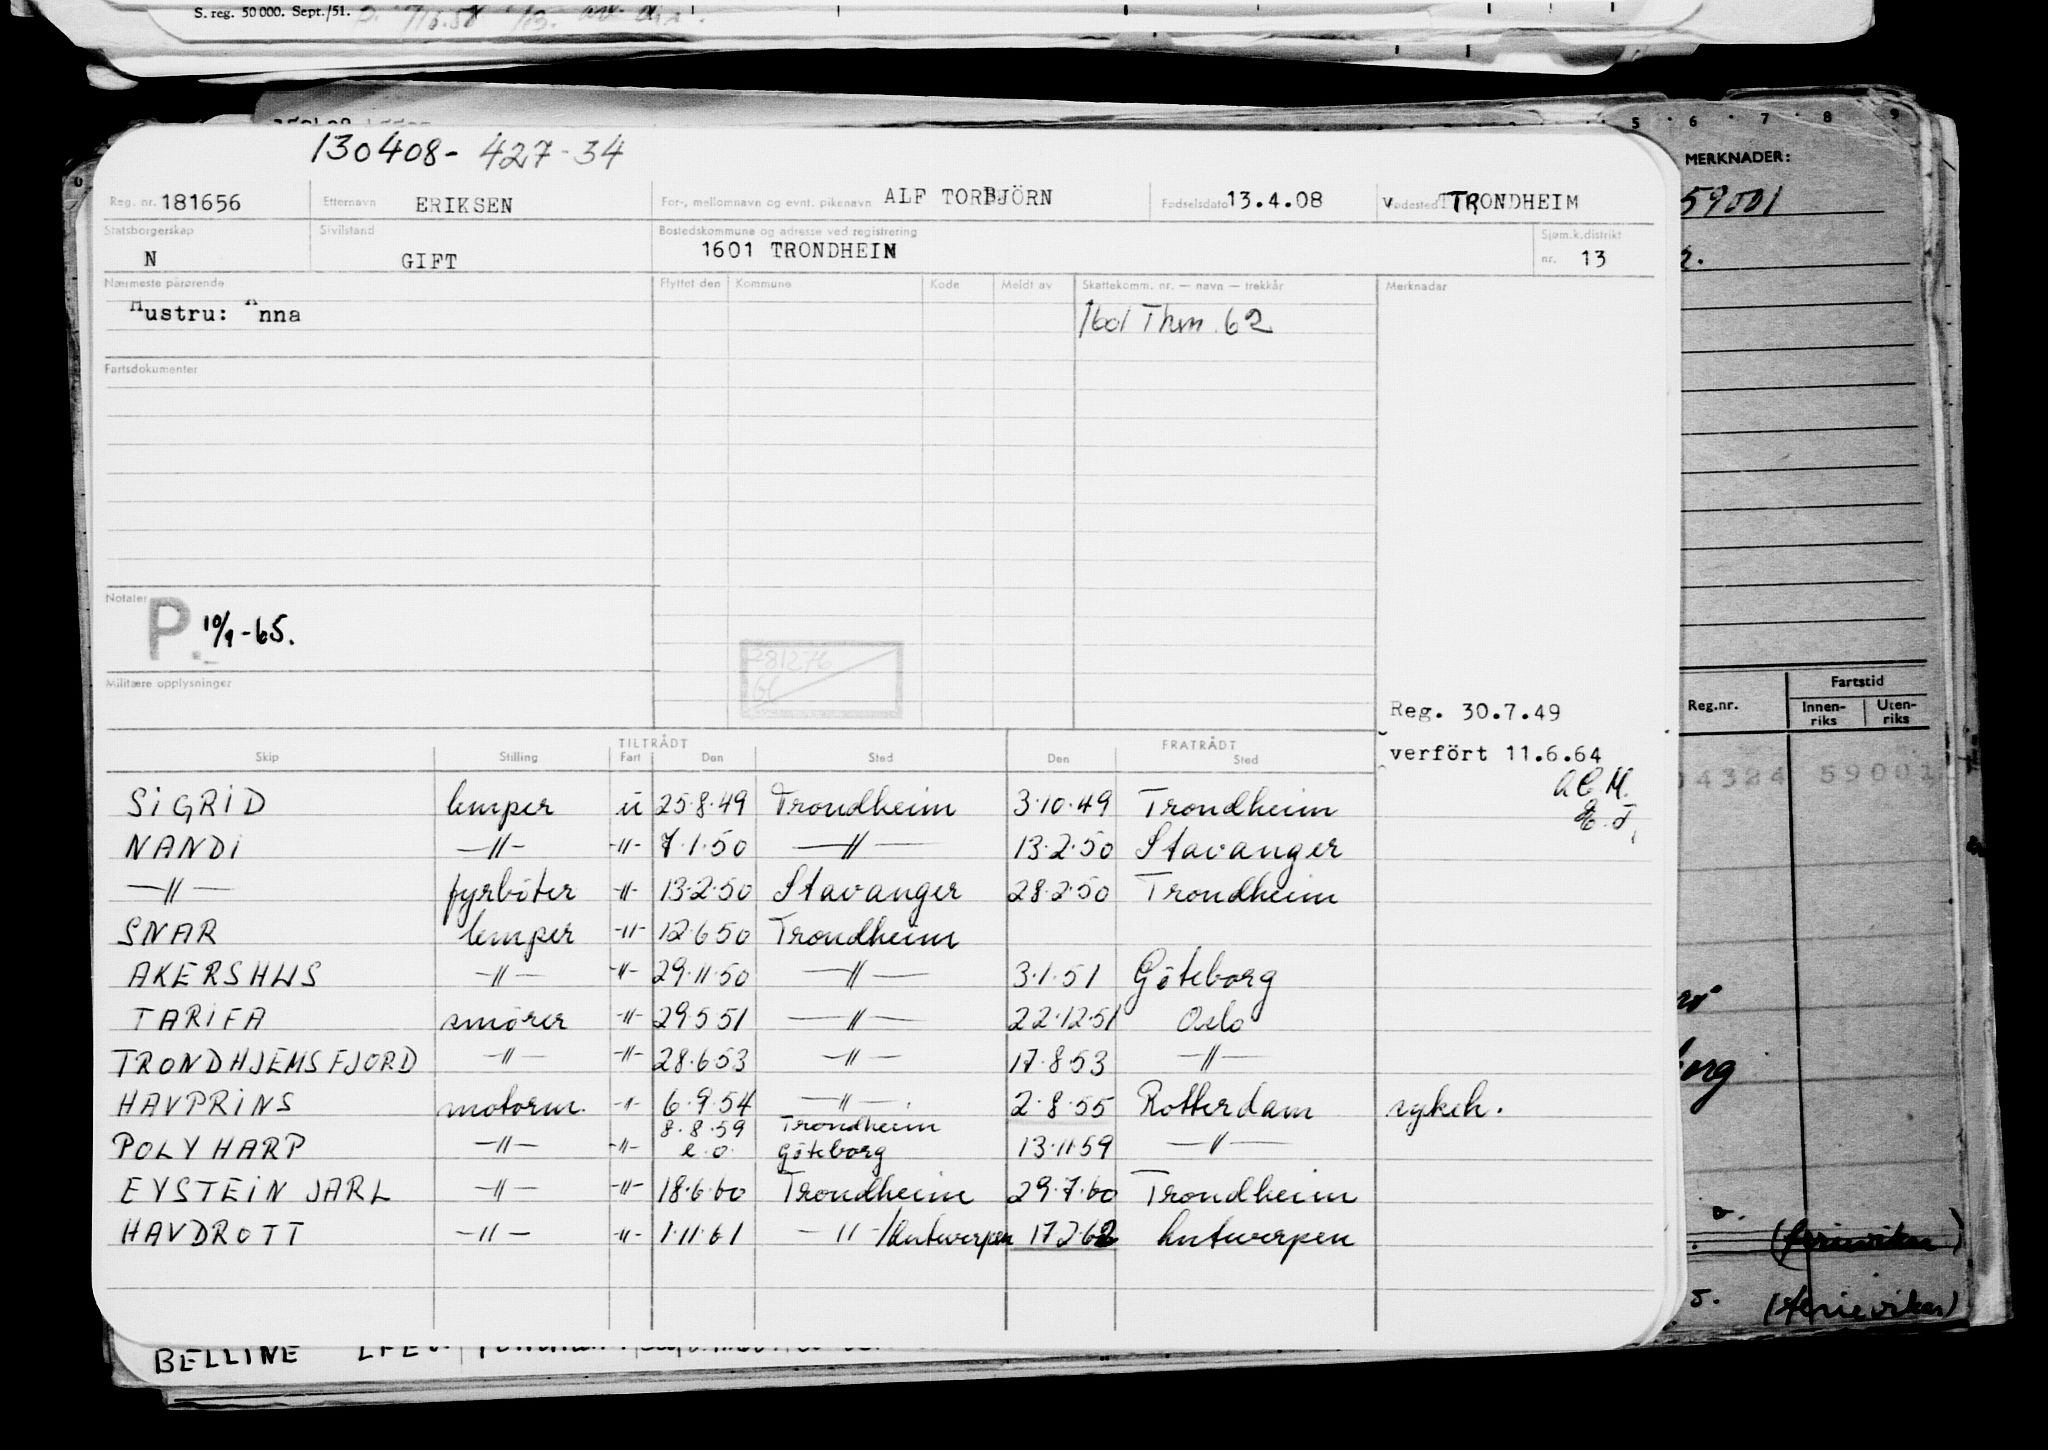 S. reg. 50 000. Sept./51.
5 · 6 · 7 · 8 9
MERKNADER:
59001
130408- 427-34
Reg. nr. 181656 Etternavn ERIKSEN For-, mellomnavn og evnt. pikenavn ALF TORBJÖRN Fødselsdato 13.4.08 Fødested TRONDHEIM
Statsborgerskap Sivilstand Bostedskommune og adresse ved registrering Sjøm.k.distrikt
N GIFT 1601 TRONDHEIM nr. 13
Nærmeste pårørende Flyttet den Kommune Kode Meldt av Skattekomm. nr. — navn — trekkår Merknader
Hustru: Anna 1601 Thm. 62
Fartsdokumenter
Notater
P. 10/9-65.
281276
Militære opplysninger
Reg. 30.7.49
Fartstid
Reg.nr. Innen-riks Uten-riks
TILTRÅDT FRATRÅDT
verfört 11.6.64
Skip Stilling Fart Den Sted Den Sted
04384 59001
SIGRID lemper u 25.8.49 Trondheim 3.10.49 Trondheim
NANDI —"— -"- 7.1.50 —"— 13.2.50 Stavanger
—"— fyrböter -"- 13.2.50 Stavanger 28.2.50 Trondheim
SNAR lemper -"- 12.6.50 Trondheim
AKERSHUS —"— -"- 29.11.50 —"— 3.1.51 Göteborg
TARIFA smörer -"- 29.5.51 —"— 22.12.51 Oslo
TRONDHJEMSFJORD —"— -"- 28.6.53 —"— 17.8.53 —"—
HAVPRINS motorm. -"- 6.9.54 —"— 2.8.55 Rotterdam sykeh.
8.8.59 Trondheim
POLYHARP —"— -"- e.o. Göteborg 13.11.59 —"—
EYSTEIN JARL —"— -"- 18.6.60 Trondheim 29.7.60 Trondheim
HAVDROTT —"— -"- 1.11.61 —"—/Antwerpen 17.2.62 Antwerpen
BELLINE